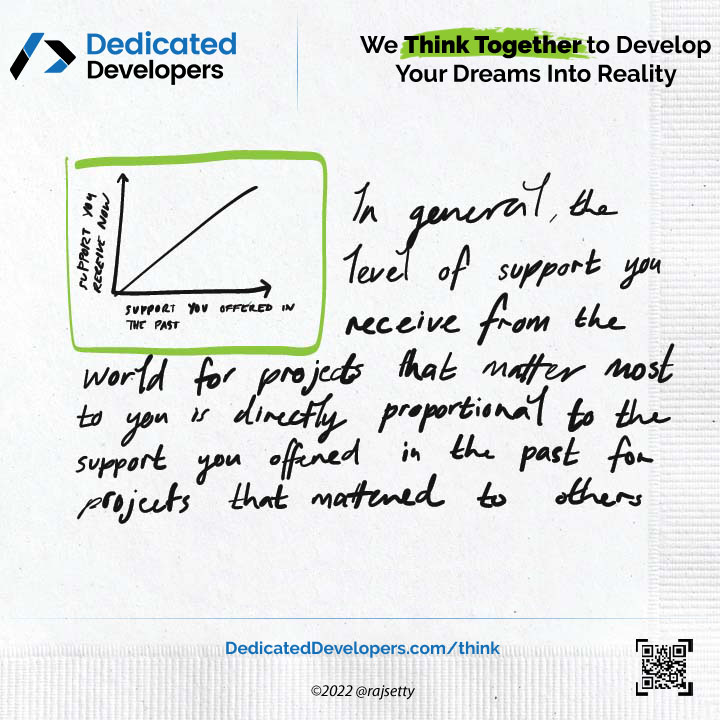 Dedicated
Developers
We Think Together to Develop
Your Dreams Into Reality
SUPPORT YOU
RECEIVE NOW
SUPPORT YOU OFFERED IN
THE PAST
In general, the
level of support you
receive from the
world for projects that matter most
to you is directly proportional to the
support you offered in the past for
projects that mattered to others
DedicatedDevelopers.com/think
©2022 @rajsetty